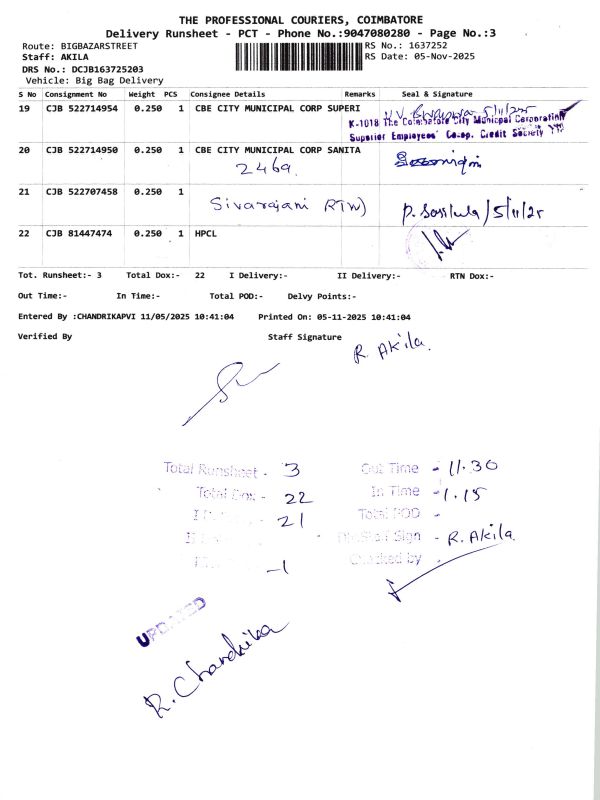 THE PROFESSIONAL COURIERS, COIMBATORE
Delivery Runsheet - PCT - Phone No.:9047080280 - Page No.:3
Route: BIGBAZARSTREET RS No.: 1637252
Staff: AKILA RS Date: 05-Nov-2025
DRS No.: DCJB163725203
Vehicle: Big Bag Delivery
S No Consignment No Weight PCS Consignee Details Remarks Seal & Signature
19 CJB 522714954 0.250 1 CBE CITY MUNICIPAL CORP SUPERI 5/11/25
K-1018 The Coimbatore City Municipal Corporation
Superior Employees' Co-op. Credit Society
20 CJB 522714950 0.250 1 CBE CITY MUNICIPAL CORP SANITA
2469.
21 CJB 522707458 0.250 1
Sivarajani RTW) P. Sasikala/5/11/25
22 CJB 81447474 0.250 1 HPCL
Tot. Runsheet:- 3 Total Dox:- 22 I Delivery:- II Delivery:- RTN Dox:-
Out Time:- In Time:- Total POD:- Delvy Points:-
Entered By :CHANDRIKAPVI 11/05/2025 10:41:04 Printed On: 05-11-2025 10:41:04
Verified By Staff Signature
R. Akila.
Total Runsheet - 3 Out Time - 11.30
Total Dox - 22 In Time - 1.15
21 Total POD -
Sign - R. Akila.
-1 Checked by
UPDATED
R. Chandrika